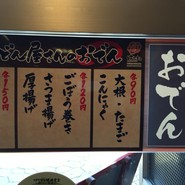 おでん屋さんのおでん
各90円
大根・たまご
こんにゃく
各120円
ごぼう巻き
さつま揚げ
各150円
厚揚げ
おでん